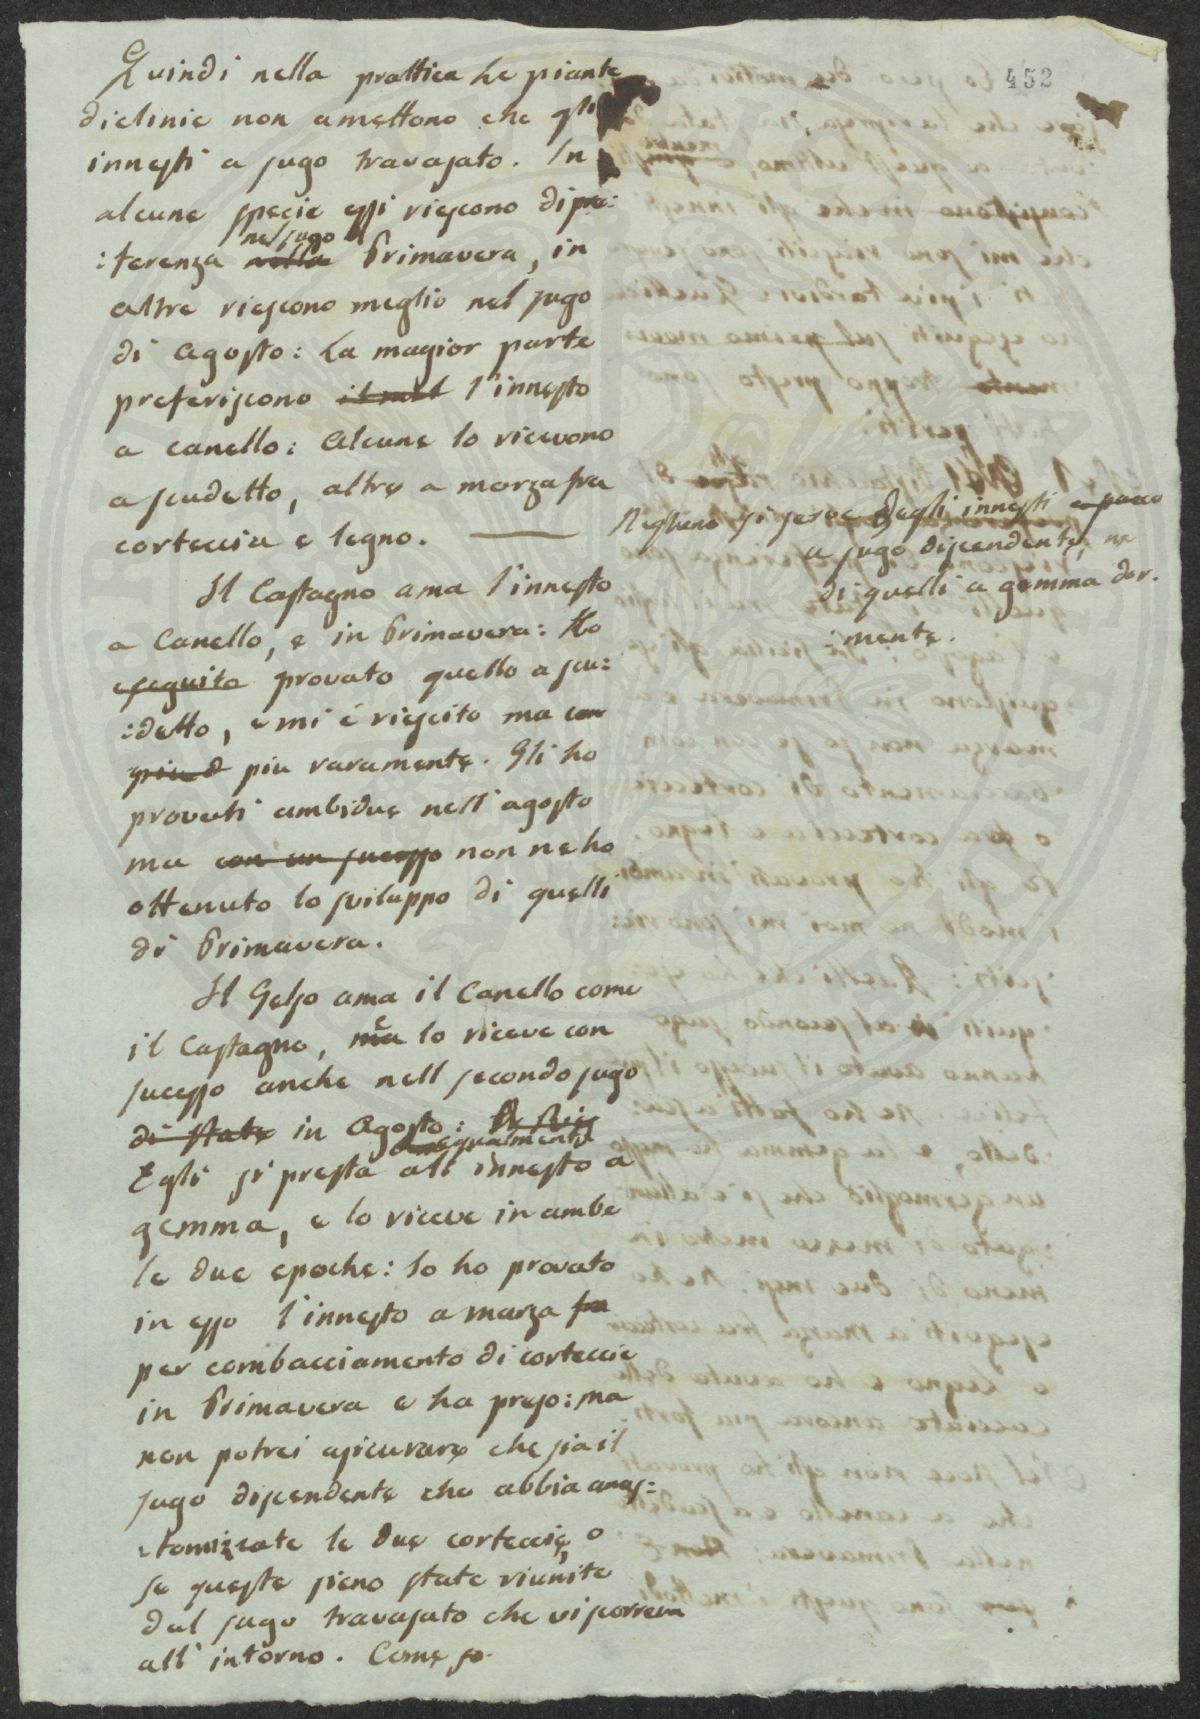 452
Quindi nella prattica le piante
diclinie non amettono che gli
innesti a sugo travasato. In
alcune specie essi riescono di pre:
:ferenza nella nel sugo Primavera, in
altre riescono meglio nel sugo
di Agosto: La magior parte
preferiscono l'innesto
a canello: Alcune lo ricevono
a scudetto, altre a marza fra
corteccia e legno.
Nessuno si serve degli innesti
a sugo discendente, ne
di quelli a gemma dor.
:mente.
Il Castagno ama l'innesto
a Canello, e in Primavera: Ho
eseguito provato quello a scu:
:detto, e mi é riescito ma con
piu d piu raramente. Gli ho
provati ambidue nell'agosto
ma con un sucesso non ne ho
ottenuto lo sviluppo di quelli
di Primavera.
Il Gelso ama il Canello come
il Castagno, ma lo riceve con
sucesso anche nell secondo sugo
di state in Agosto:
egualmente
Egli si presta all'innesto a
gemma, e lo riceve in ambe
le due epoche: Io ho provato
in esso l'innesto a marza fra
per combacciamento di corteccie
in Primavera e ha preso: ma
non potrei asicurare che sia il
sugo discendente che abbia anas:
:tomizzate le due corteccie, o
se queste sieno state riunite
dal sugo travasato che vi scorreva
all'intorno. Come so